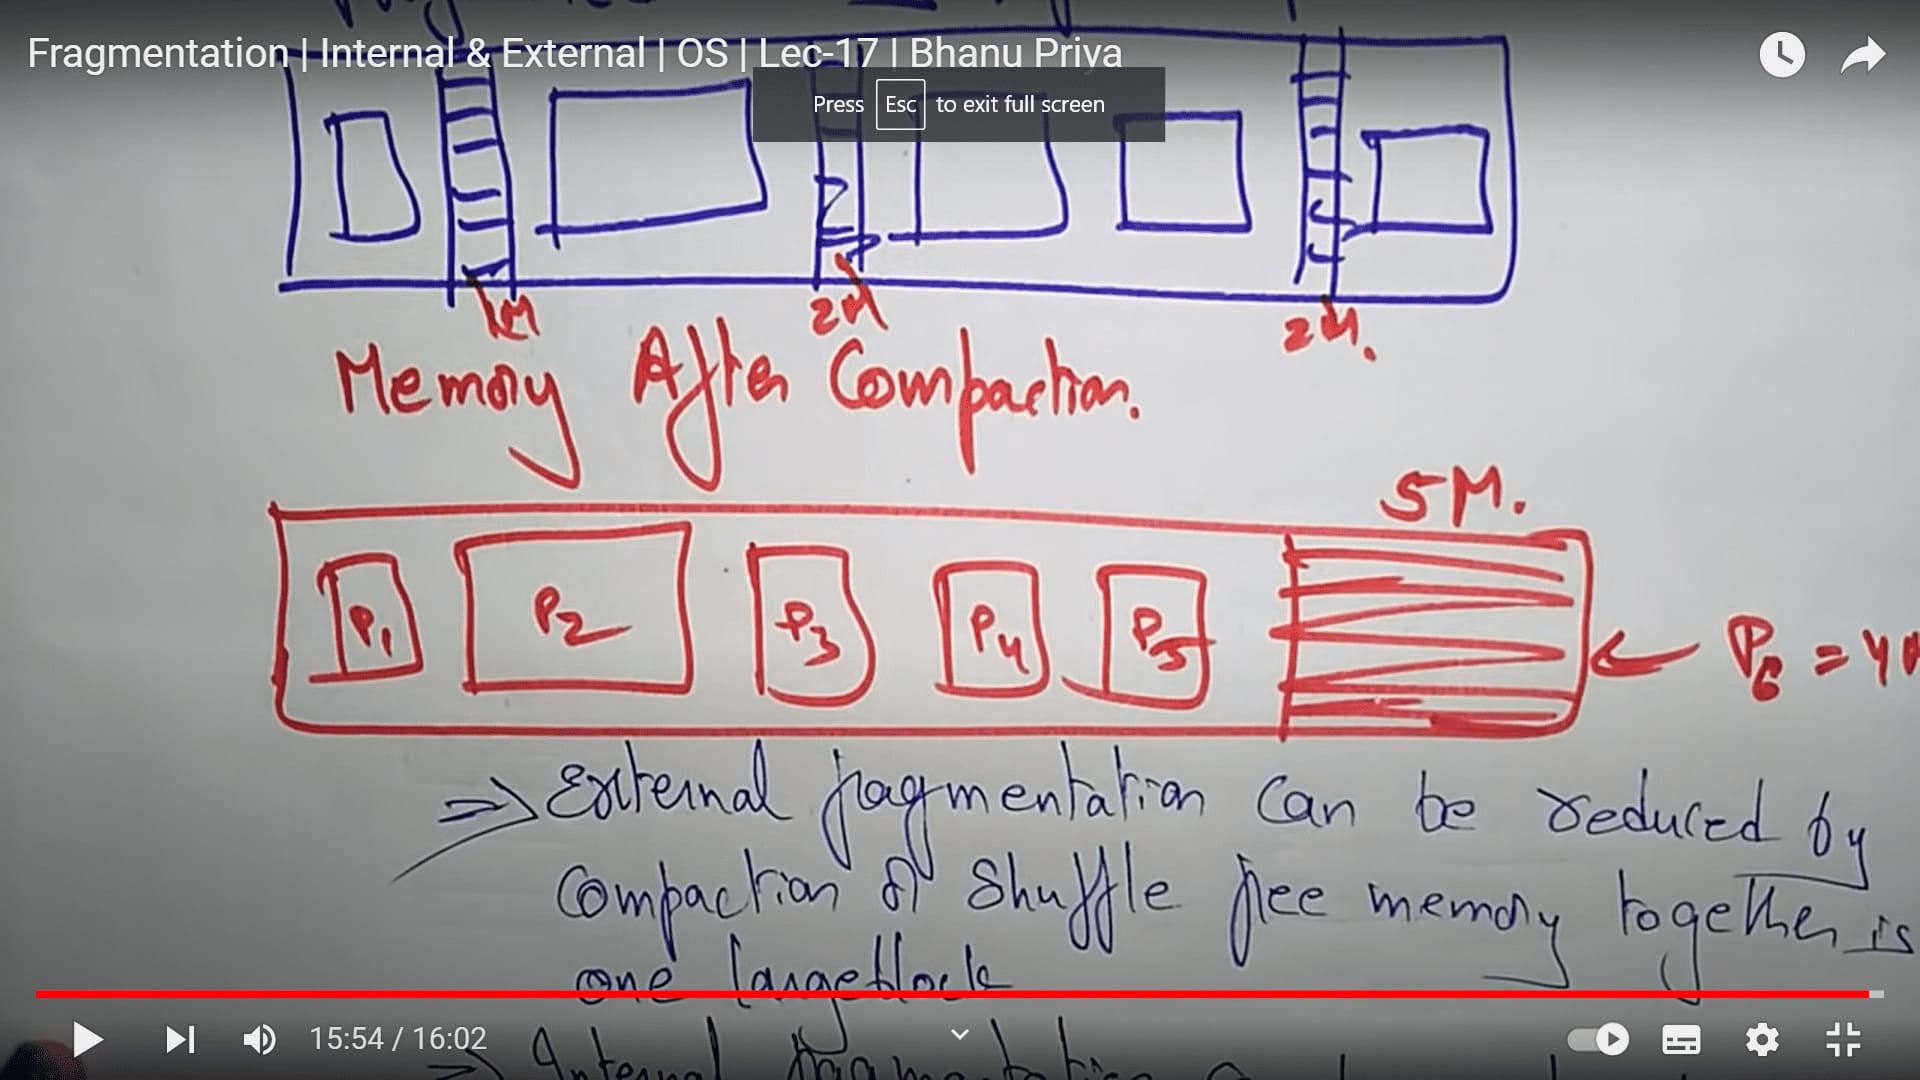 Fragmentation | Internal & External | OS | Lec-17 | Bhanu Priya
Press Esc to exit full screen
1M 2M 2M.
Memory After Compaction.
5M.
P1 P2 P3 P4 P5
P6 = 4M
⇒ External fragmentation can be reduced by
Compaction or Shuffle free memory together is
one large block
⇒ Internal fragmentation
15:54 / 16:02